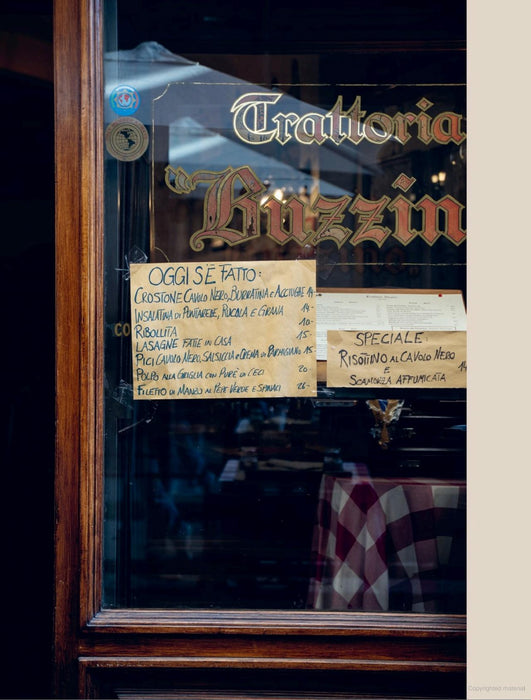 Trattoria
Buzzin
OGGI SÉ FATTO:
CROSTONE CAVOLO NERO, BURRATINA E ACCIUGHE 14-
INSALATINA DI PUNTARELLE, RUCOLA E GRANA 14-
RIBOLLITA 10-
LASAGNE FATTE IN CASA 15-
PICI CAVOLO NERO, SALSICCIA E CREMA DI PARMIGIANO 15
POLPO ALLA GRIGLIA CON PURÈ DI CECI 20-
FILETTO DI MANZO AL PEPE VERDE E SPINACI 26-
SPECIALE:
RISOTTINO AL CAVOLO NERO
E
SCAMORZA AFFUMICATA 14
CO
Copyrighted material